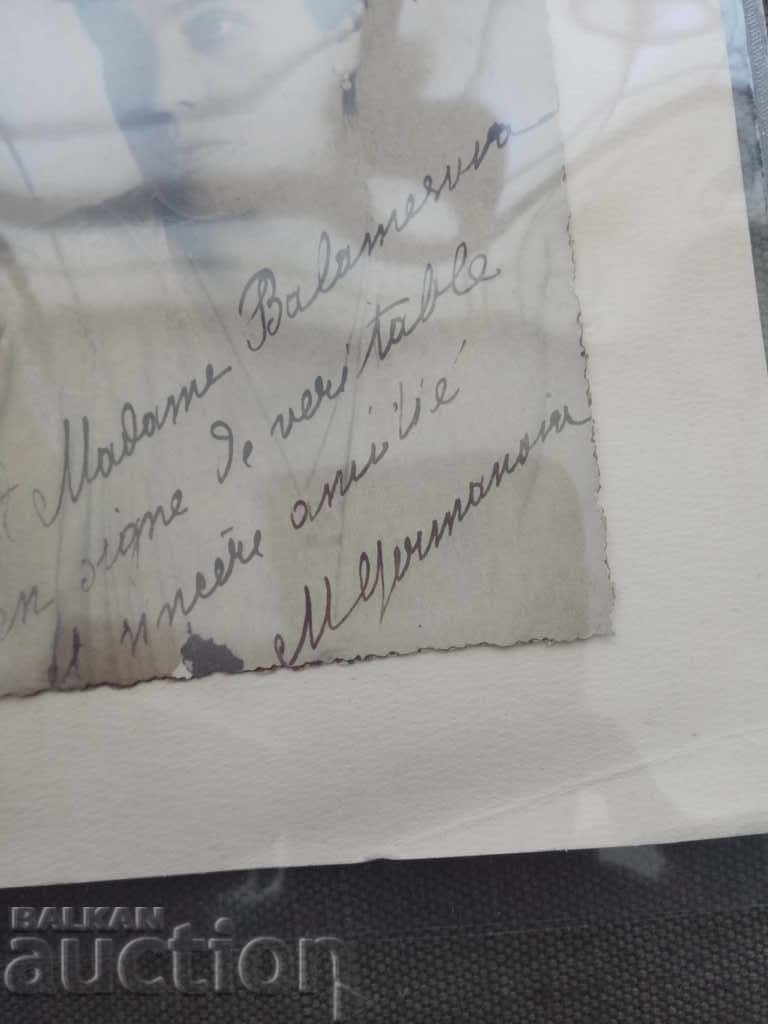 Madame Balamesova
en signe de veritable
et sincère amitié
M Germanova
BALKAN
auction